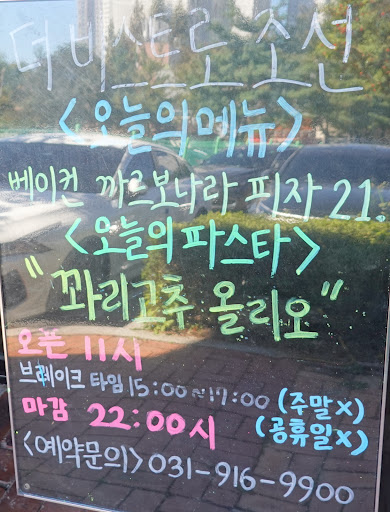 더비스트로 조선
<오늘의 메뉴>
베이컨 까르보나라 피자 21.
<오늘의 파스타>
"꽈리고추 올리오"
오픈 11시
브레이크 타임 15:00~17:00 (주말X)
마감 22:00시 (공휴일X)
<예약문의> 031-916-9900